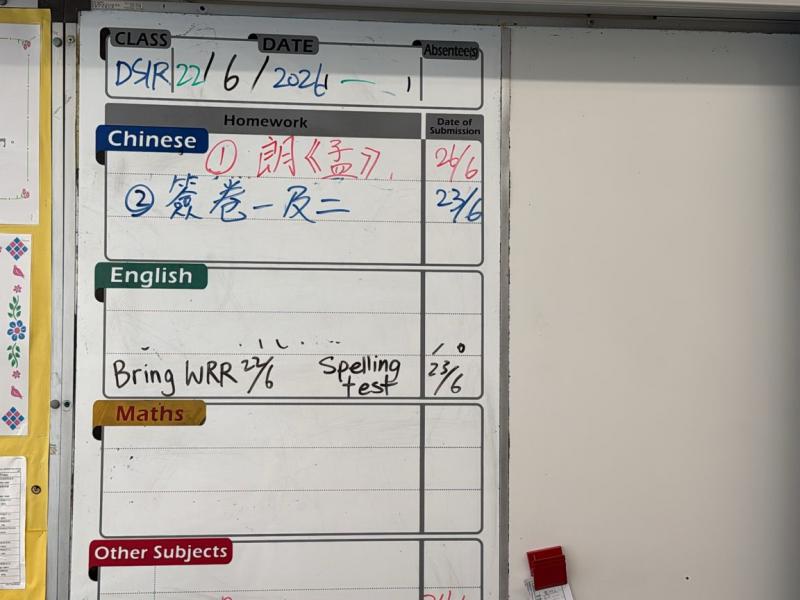 CLASS DATE Absentee(s)
DSIR 22/6/2026
Homework Date of Submission
Chinese
① 朗《孟》. 26/6
② 簽卷一及二 23/6
English
Bring WRR 22/6 Spelling test 23/6
Maths
Other Subjects